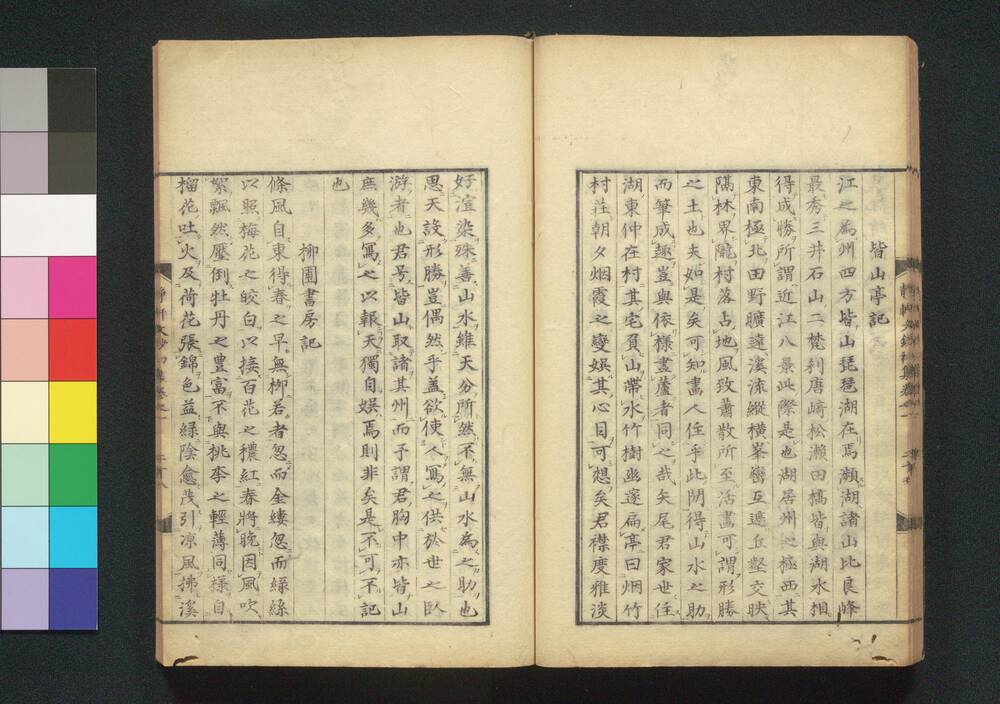 皆山亭記
江之爲州四方皆山琵琶湖在焉瀕湖諸山比良峰
最秀三井石山二梵刹唐﨑松瀬田橋皆與湖水相
得成勝所謂近江八景此際是也湖居州之極西其
東南極北田野曠遠溪流縱横峯巒互遮丘壑交映
隔林界隴村落占地風致蕭散所至活畫可謂形勝
之土也夫如是矣可知畫人住乎此閒得山水之助
而筆成趣豈與依樣畫蘆者同之哉矢尾君家世住
湖東仲在村其宅負山帶水竹樹幽邃扁亭曰烟竹
村莊朝夕烟霞之變娯其心目可想矣君襟度雅淡
好渲染殊善山水雖天分所然不無山水為之助也
思天設形勝豈偶然乎盖欲使人寫之供於世之臥
游者也君号皆山取諸其州而予謂君胸中亦皆山
庶幾多寫之以報天獨自娯焉則非矣是不可不記
也
柳圃書房記
條風自東得春之早無柳若者忽而金縷忽而緑絲
以照梅花之皎白以接百花之穠紅春將晩因風吹
絮飄然壓倒牡丹之豊富不與桃李之輕薄同樣自
榴花吐火及荷花張錦色益緑陰愈茂引凉風拂溪